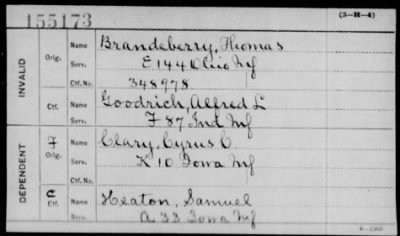 155173
(3-H-4)
INVALID
Orig. Name Brandeberry, Thomas
Serv. E 144 Ohio Inf
Ctf. No. 348978
Ctf. Name Goodrich, Alfred L
Serv. F 87 Ind Inf
DEPENDENT
F Orig. Name Clary, Cyrus C.
Serv. K 10 Iowa Inf
Ctf. No.
C Ctf. Name Heaton, Samuel
Serv. A 33 Iowa Inf